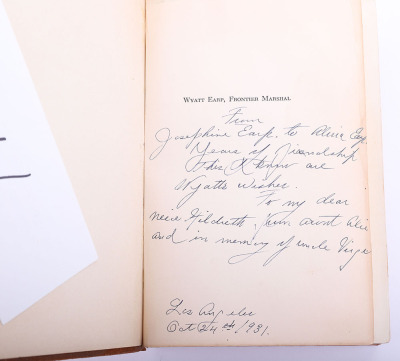 Wyatt Earp, Frontier Marshal
From
Josephine Earp. to Alvira Earp.
Years of friendship
this I know are
Wyatts wishes.
To my dear
neice Hildreth. from aunt Allie
and in memory of uncle Virge
Los Angeles
Oct 24th, 1931.